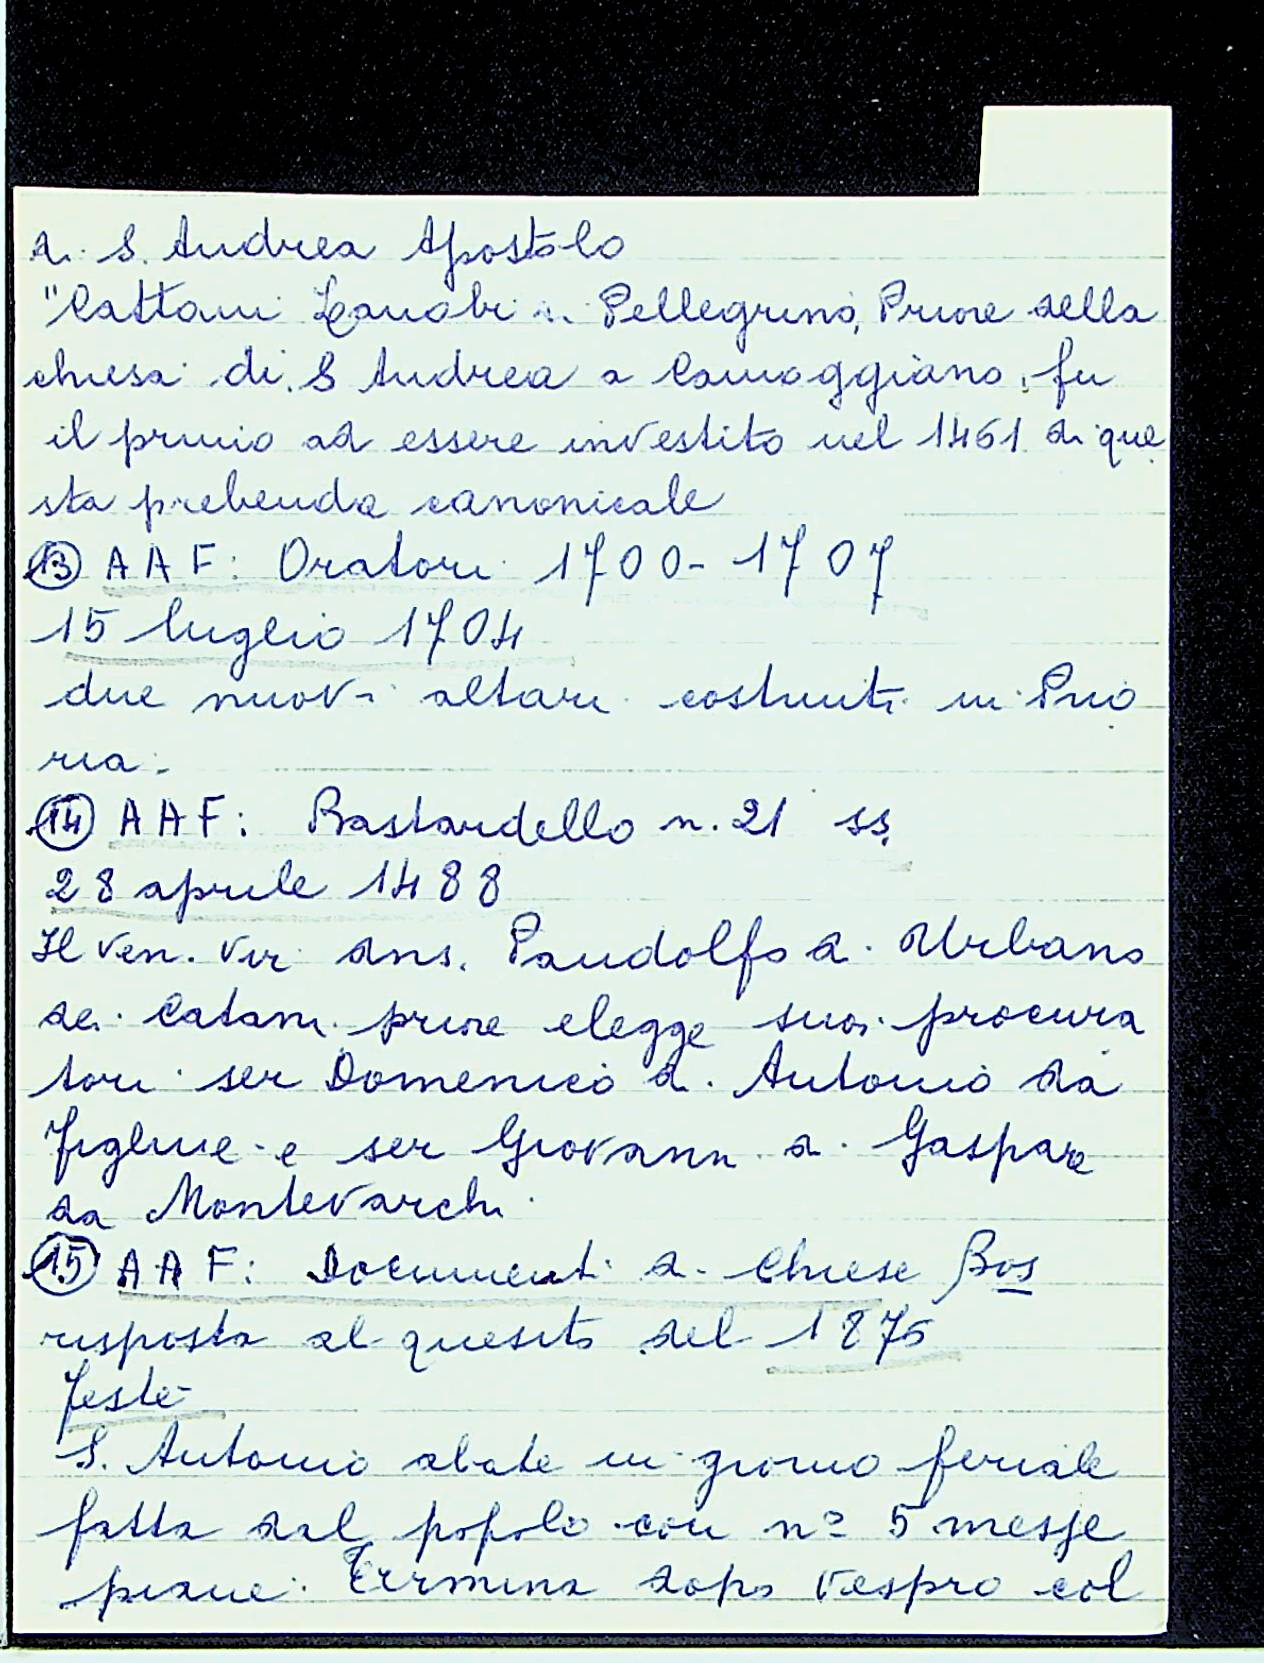 di S. Andrea Apostolo
"Cattani Zanobi di Pellegrino, Priore della
chiesa di S Andrea a Camoggiano, fu
il primo ad essere investito nel 1461 di que
sta prebenda canonicale
(13) AAF: Oratori 1700-1707
15 luglio 1704
due nuovi altari costruiti in Prio
ria.
(14) AAF: Bastardello n. 21 ss.
28 aprile 1488
Il ven. vir dns. Pandolfo d. Urbano
dei Catani priore elegge suoi procura
tori ser Domenico di Antonio da
Figline e ser Giovanni di Gaspare
da Montevarchi
(15) AAF: Documenti di Chiese Bos
risposta al quesito del 1875
Feste
S. Antonio abate in giorno feriale
fatta dal popolo con n° 5 messe
piane. Termina dopo vespro col